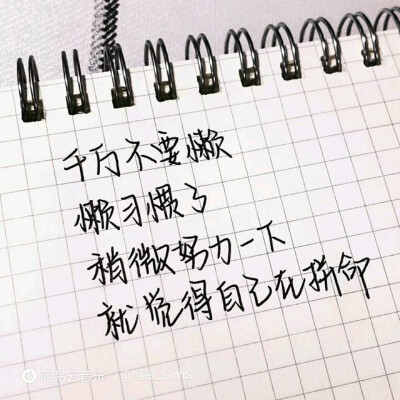 千万不要懒
懒习惯了
稍微努力一下
就觉得自己在拼命
网易云音乐